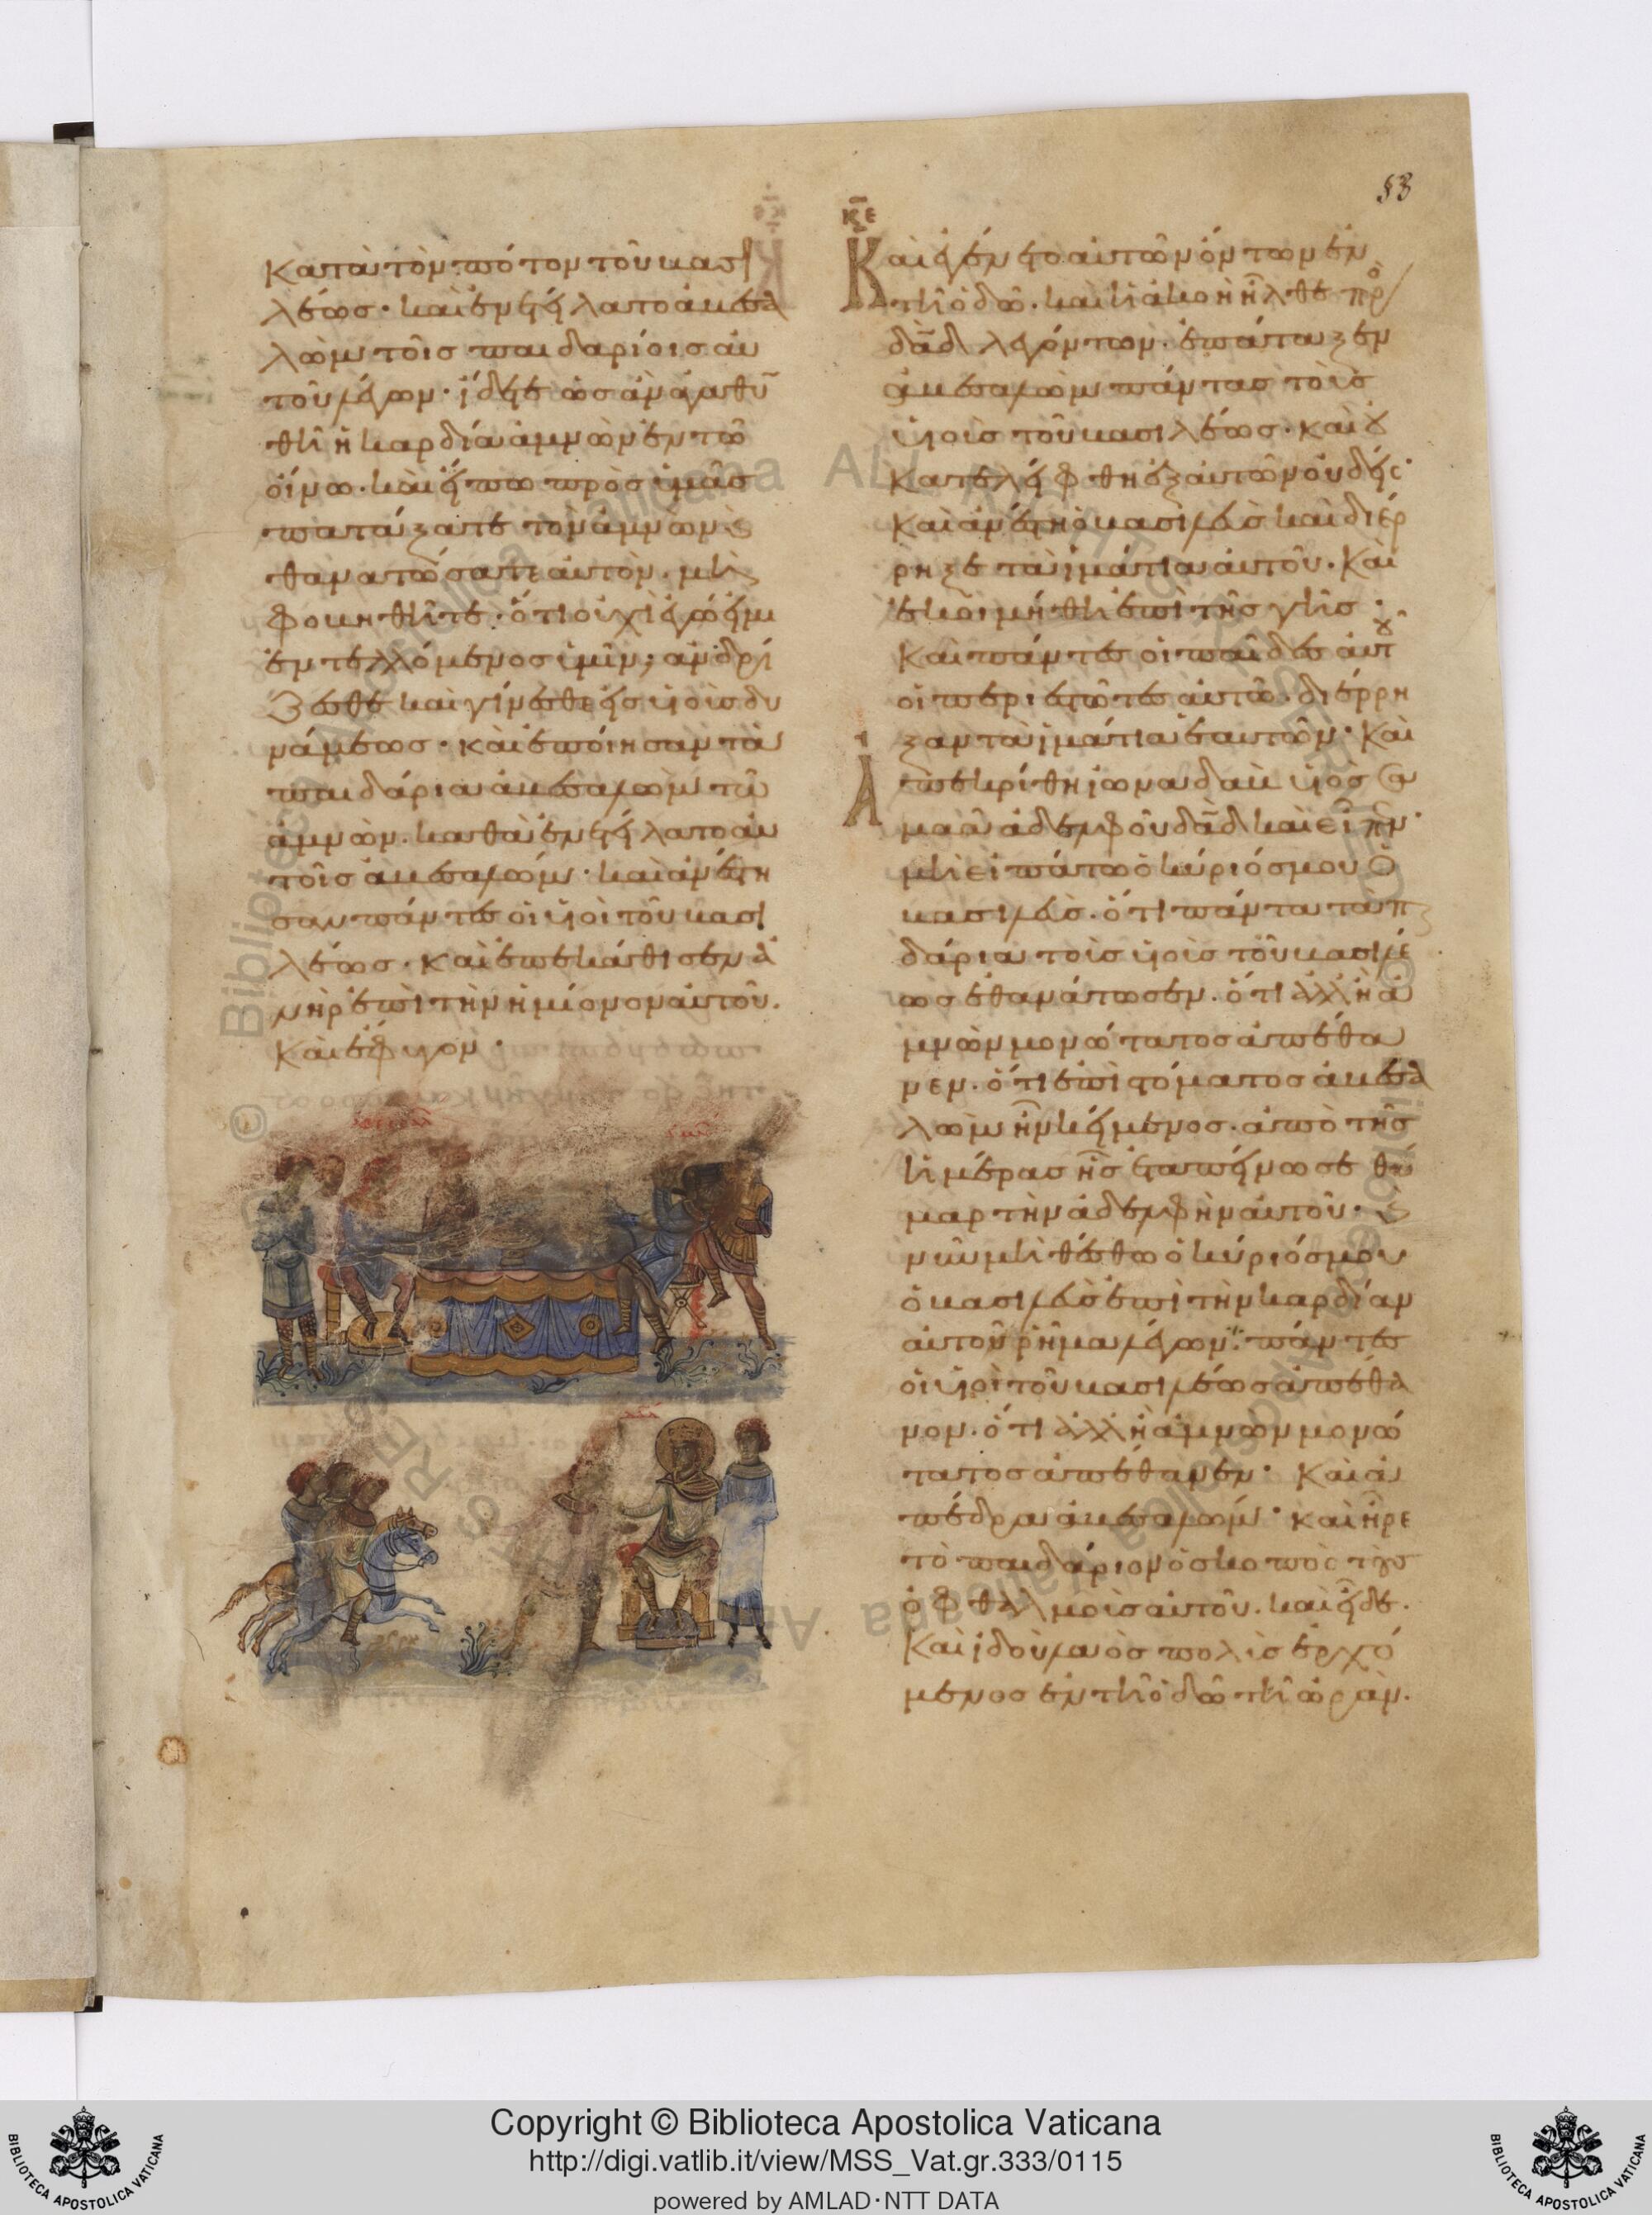 53
κατὰ τὸν πότον τοῦ βασι
λέως· καὶ ἐνετείλατο ἀβεσα
λὼμ τοῖς παιδαρίοις αὐ
τοῦ λέγων· ἴδετε ὡς ἂν ἀγαθυν
θῆ ἡ καρδία ἀμνὼν ἐν τῶ
οἴνω. καὶ εἴπω πρὸς ὑμᾶς
πατάξατε τὸν ἀμνὼν καὶ
θανατώσατε αὐτόν. μὴ
φοβηθῆτε. ὅτι οὐχὶ ἐγώ εἰμι
ἐντελλόμενος ὑμῖν; ἀνδρί
ζεσθε καὶ γίνεσθε εἰς υἱοὺς δυ
νάμεως· καὶ ἐποίησαν τὰ
παιδάρια ἀβεσαλὼμ τῶ
ἀμνὼν. καθὰ ἐνετείλατο αὐ
τοῖς ἀβεσαλώμ· καὶ ἀνέστη
σαν πάντες οἱ υἱοὶ τοῦ βασι
λέως· καὶ ἐπεκάθισεν ἀ
νὴρ ἐπὶ τὴν ἡμίονον αὐτοῦ.
καὶ ἔφυγον·
κε
Καὶ ἐγένετο αὐτῶν ὄντων ἐν
τῆ ὁδῶ. καὶ ἡ ἀκοὴ ἦλθε πρὸ
δαδ λεγόντων. ἐπάταξεν
ἀβεσαλὼμ πάντας τοὺς
υἱοὺς τοῦ βασιλέως· καὶ οὐ
κατελείφθη ἐξ αὐτῶν οὐδείς·
καὶ ἀνέστη ὁ βασιλεὺς καὶ διέρ
ρηξε τὰ ἱμάτια αὐτοῦ. καὶ
ἐκοιμήθη ἐπὶ τῆς γῆς·
καὶ πάντες οἱ παῖδες αὐτου
οἱ περιεστῶτες αὐτῶ. διέρρη
ξαν τὰ ἱμάτια ἑαυτῶν· καὶ
Ἀπεκρίθη ἰωναδὰβ υἱὸς σα
μαὰ ἀδελφοῦ δαδ καὶ εἶπεν·
μὴ εἰπάτω ὁ κύριός μου ὁ
βασιλεὺς. ὅτι πάντα τὰ παι
δάρια τοὺς υἱοὺς τοῦ βασιλέ
ως ἐθανάτωσεν. ὅτι ἀλλ' ἢ ἀ
μνὼν μονώτατος ἀπέθα
νεν. ὅτι ἐπὶ στόματος ἀβεσα
λὼμ ἦν κείμενος. ἀπὸ τῆς
ἡμέρας ἧς ἐταπείνωσε θη
μὰρ τὴν ἀδελφὴν αὐτοῦ· καὶ
νῦν μὴ θέσθω ὁ κύριός μου
ὁ βασιλεὺς ἐπὶ τὴν καρδίαν
αὐτοῦ ῥῆμα λέγων· πάντες
οἱ υἱοὶ τοῦ βασιλέως ἀπέθα
νον. ὅτι ἀλλ' ἢ ἀμνὼν μονώ
τατος ἀπέθανεν· καὶ ἀ
πέδρα ἀβεσαλώμ· καὶ ἦρε
τὸ παιδάριον ὁ σκοπὸς τοὺς
ὀφθαλμοὺς αὐτοῦ. καὶ εἶδε.
καὶ ἰδοὺ λαὸς πολὺς ἐρχό
μενος ἐν τῆ ὁδῶ τῆ ὠρὰν.
Copyright © Biblioteca Apostolica Vaticana
http://digi.vatlib.it/view/MSS_Vat.gr.333/0115
powered by AMLAD·NTT DATA
BIBLIOTECA APOSTOLICA VATICANA
BIBLIOTECA APOSTOLICA VATICANA